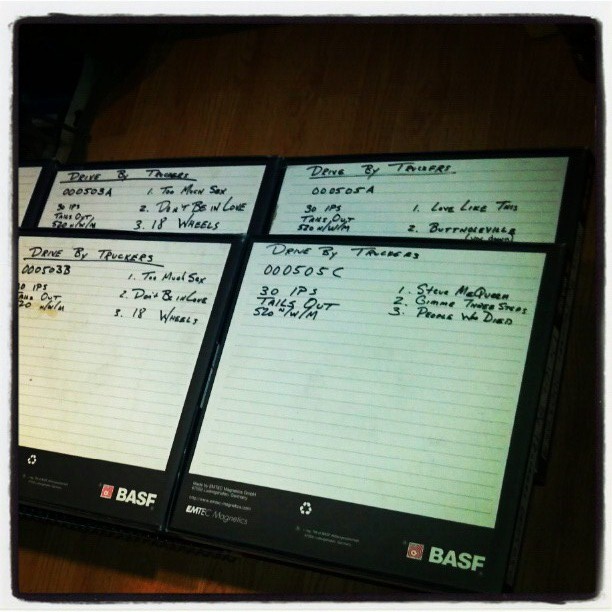 DRIVE BY TRUCKERS
000503A
1. TOO MUCH SEX
30 IPS
2. DON'T BE IN LOVE
TAILS OUT
520 N/W/M
3. 18 WHEELS
DRIVE BY TRUCKERS
000505A
30 IPS
1. LOVE LIKE THIS
TAILS OUT
520 N/W/M
2. BUTTHOLEVILLE
DRIVE BY TRUCKERS
000503B
1. TOO MUCH SEX
30 IPS
2. DON'T BE IN LOVE
TAILS OUT
520 N/W/M
3. 18 WHEELS
BASF
DRIVE BY TRUCKERS
000505C
30 IPS
1. STEVE MCQUEEN
TAILS OUT
2. GIMME THREE STEPS
520 N/W/M
3. PEOPLE WHO DIED
Made by EMTEC Magnetics GmbH
67059 Ludwigshafen, Germany
http://www.emtec-magnetics.com
EMTEC Magnetics
BASF